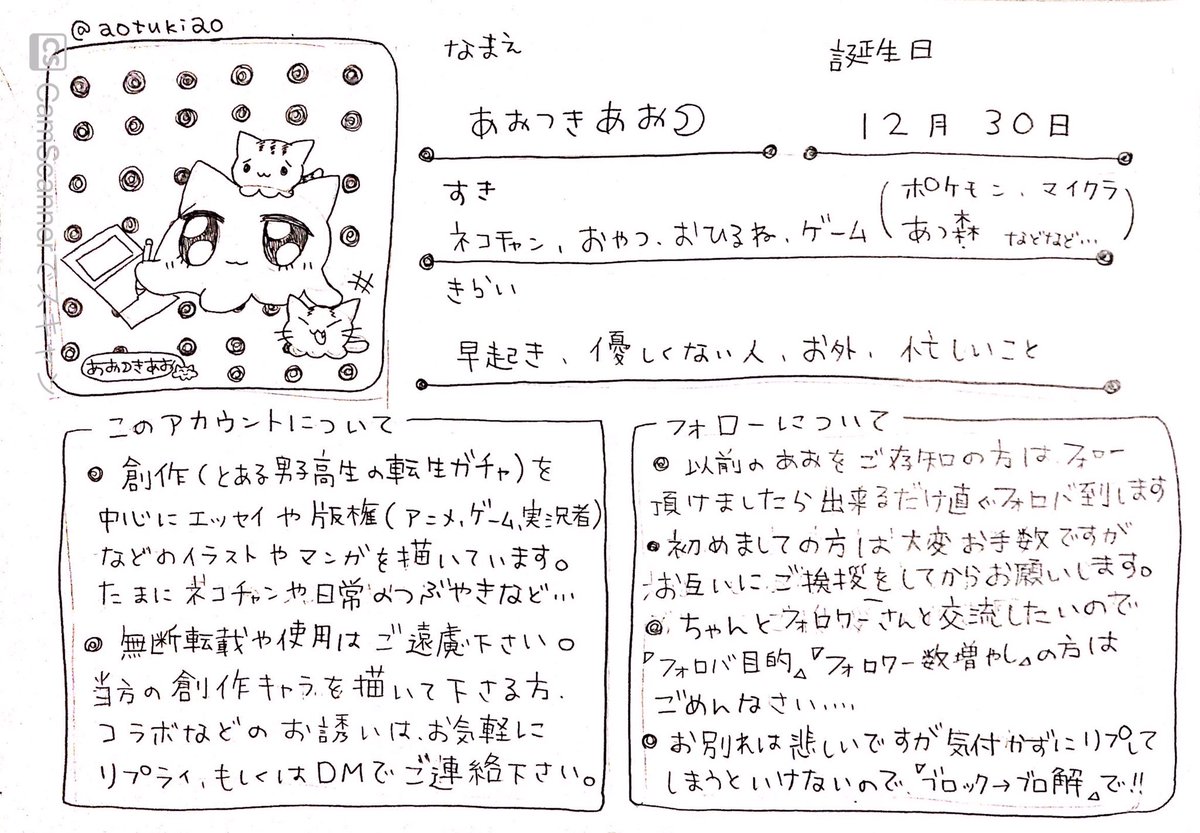 @aotuki20
CS CamScannerでスキャン
あおつきあお
なまえ
あおつきあお
誕生日
12月 30日
すき
ネコチャン、おやつ、おひるね、ゲーム(ポケモン、マイクラ
あつ森 などなど…)
きらい
早起き、優しくない人、お外、忙しいこと
このアカウントについて
創作(とある男子高生の転生ガチャ)を
中心にエッセイや版権(アニメ、ゲーム、実況者)
などのイラストやマンガを描いています。
たまにネコチャンや日常のつぶやきなど…
無断転載や使用はご遠慮下さい。
当方の創作キャラを描いて下さる方、
コラボなどのお誘いは、お気軽に
リプライ、もしくはDMでご連絡下さい。
フォローについて
以前のあおをご存知の方はフォロー
頂けましたら出来るだけ直ぐフォロバ到します
初めましての方は大変お手数ですが
お互いにご挨拶をしてからお願いします。
ちゃんとフォロワーさんと交流したいので
『フォロバ目的』『フォロワー数増やし』の方は
ごめんなさい……
お別れは悲しいですが気付かずにリプして
しまうといけないので『ブロック→ブロ解』で!!